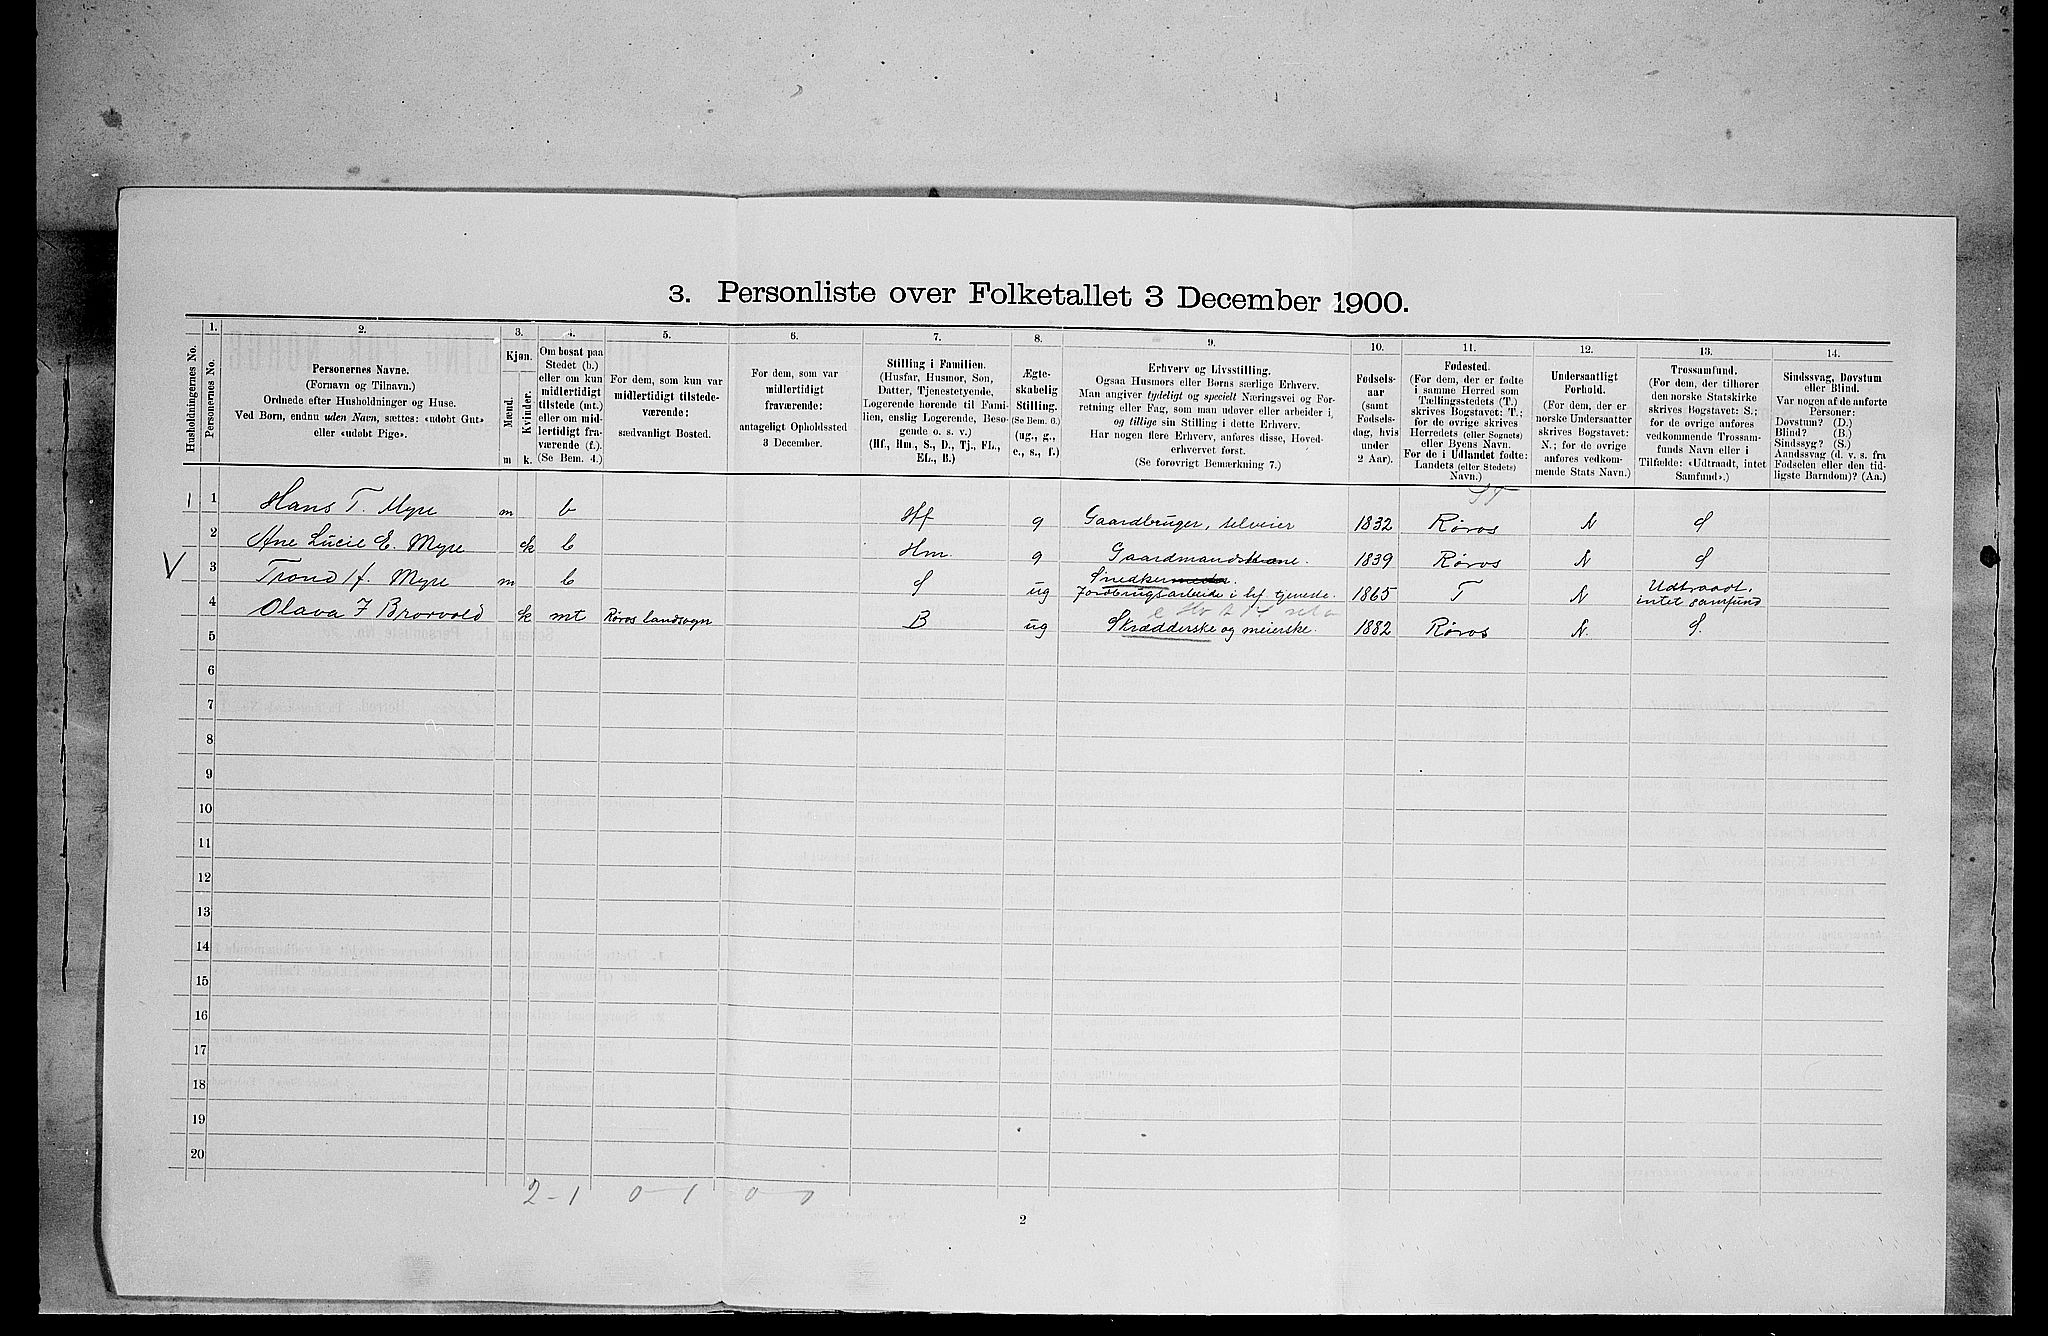 3. Personliste over Folketallet 3 December 1900.
Husholdningernes No.
1.
Personernes No.
2.
Personernes Navne.
(Fornavn og Tilnavn.)
Ordnede efter Husholdninger og Huse.
Ved Børn, endnu uden Navn, sættes: «udøbt Gut»
eller «udøbt Pige».
3.
Kjøn.
Mænd.
Kvinder.
m k.
4.
Om bosat paa
Stedet (b.)
eller om kun
midlertidigt
tilstede (mt.)
eller om mid-
lertidigt fra-
værende (f.).
(Se Bem. 4.)
5.
For dem, som kun var
midlertidigt tilstede-
værende:
sædvanligt Bosted.
6.
For dem, som var
midlertidigt
fraværende:
antageligt Opholdssted
3 December.
7.
Stilling i Familien.
(Husfar, Husmor, Søn,
Datter, Tjenestetyende,
Logerende hørende til Fami-
lien, enslig Logerende, Besø-
gende o. s. v.)
(Hf., Hm., S., D., Tj., FL.,
EL., B.)
8.
Ægte-
skabelig
Stilling.
(Se Bem. 6.)
(ug., g.,
e., s., f.)
9.
Erhverv og Livsstilling.
Ogsaa Husmors eller Børns særlige Erhverv.
Man angiver tydeligt og specielt Næringsvei og For-
retning eller Fag, som man udøver eller arbeider i,
og tillige sin Stilling i dette Erhverv.
Har nogen flere Erhverv, anføres disse, Hoved-
erhvervet først.
(Se forøvrigt Bemærkning 7.)
10.
Fødsels-
aar
(samt
Fødsels-
dag, hvis
under
2 Aar).
11.
Fødested.
(For dem, der er fødte
i samme Herred som
Tællingsstedets (T.)
skrives Bogstavet: T.;
for de øvrige skrives
Herredets (eller Sognets)
eller Byens Navn.
For de i Udlandet fødte:
Landets (eller Stedets)
Navn.)
12.
Undersaatligt
Forhold.
(For dem, der er
norske Undersaatter
skrives Bogstavet:
N.; for de øvrige
anføres vedkom-
mende Stats Navn.)
13.
Trossamfund.
(For dem, der tilhører
den norske Statskirke
skrives Bogstavet: S.;
for de øvrige anføres
vedkommende Trossam-
funds Navn eller i
Tilfælde: «Udtraadt, intet
Samfund».)
14.
Sindssvag, Døvstum
eller Blind.
Var nogen af de anførte
Personer:
Døvstum? (D.)
Blind? (B.)
Sindssyg? (S.)
Aandssvag (d. v. s. fra
Fødselen eller den tid-
ligste Barndom)? (Aa.)
ST
1 1 Hans T. Myre m b Hf g Gaardbruger, selveier 1832 Røros N S
2 Ane Lucie E. Myre k b Hm. g Gaardmandskone. 1839 Røros N S
V 3 Trond H. Myre m b S ug Snedker 1865 T N Udtraadt,
Jordbrugsarbeide i hf tjeneste. intet samfund
4 Olava F Brorvold k mt Røros landsogn B ug Skrædderske og meierske. 1882 Røros N. S.
5
6
7
8
9
10
11
12
13
14
15
16
17
18
19
20
2-1 0-1 0-0
2